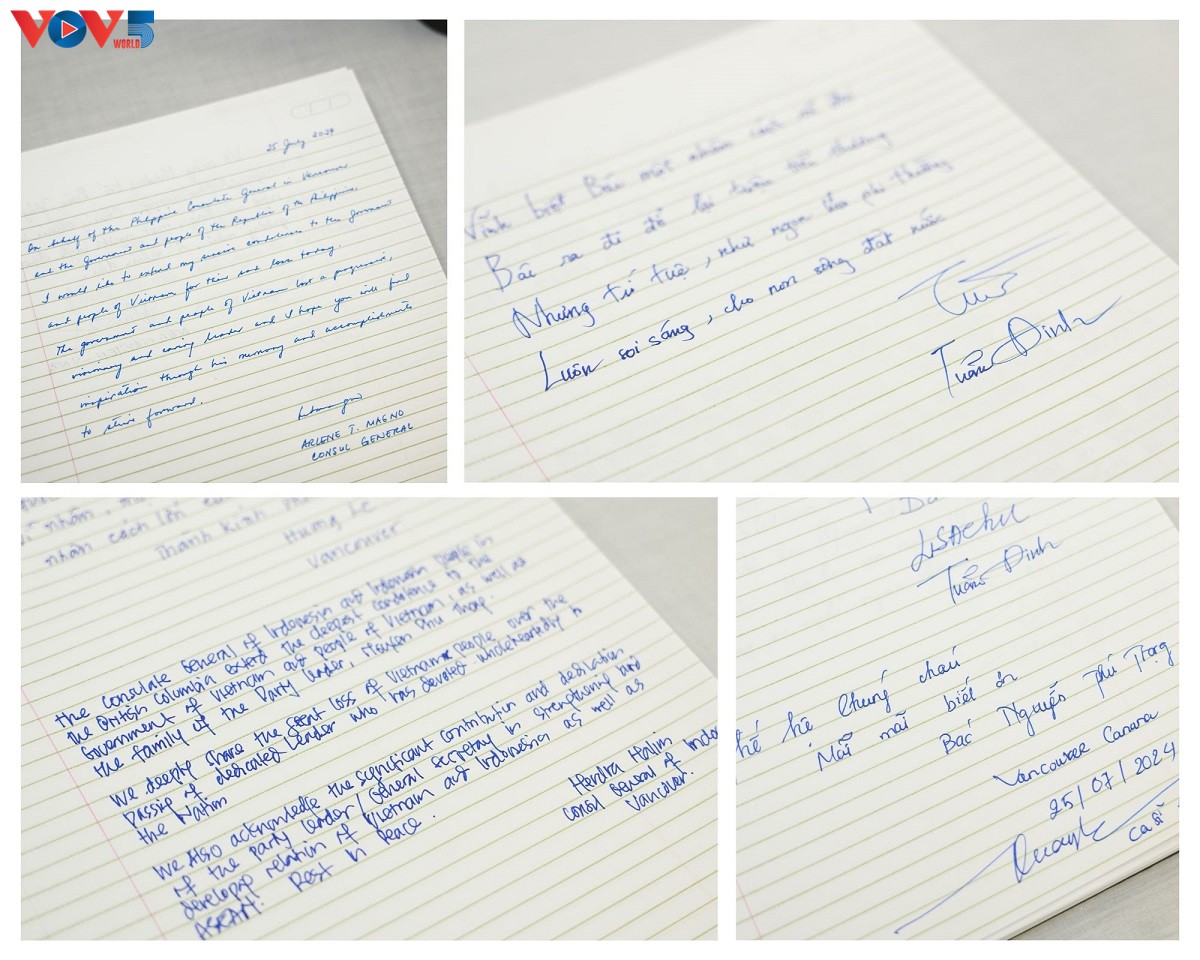 VOV5
WORLD
25 July 2024
On behalf of the Philippine Consulate General in Vancouver
and the Government and people of the Republic of the Philippines,
I would like to extend my sincere condolences to the government
and people of Vietnam for their sad loss today.
The government and people of Vietnam lost a progressive,
visionary and caring leader and I hope you will find
inspiration through his memory and accomplishments
to strive forward.
ARLENE T. MAGNO
CONSUL GENERAL
Vĩnh biệt Bác một nhân cách
Bác ra đi để lại tiếc thương
Nhưng trí tuệ, như ngọn lửa phi thường
Luôn soi sáng, cho non sông đất nước
Tuấn Đinh
nhân cách lớn
Thành kính
Hương Le
Vancouver
The Consulate General of Indonesia and Indonesian people in
the British Columbia extend the deepest condolence to the
Government of Vietnam and people of Vietnam, as well as
the family of the Party Leader, Nguyen Phu Trong.
We deeply share the great loss of Vietnamese people over the
passing of dedicated leader who has devoted wholeheartedly to
the Nation
We Also acknowledge the significant contribution and dedication
of the party leader/General secretary in strengthening and
developing relation of Vietnam and Indonesia as well as
ASEAN. Rest in Peace.
Hendra Halim
Consul General of Indo
Vancouver.
LISA CHU
Tuấn Đinh
thế hệ Chúng cháu
Mãi mãi biết ơn
Bác Nguyễn Phú Trọng
Vancouver Canada
25/07/2024
Ca sĩ